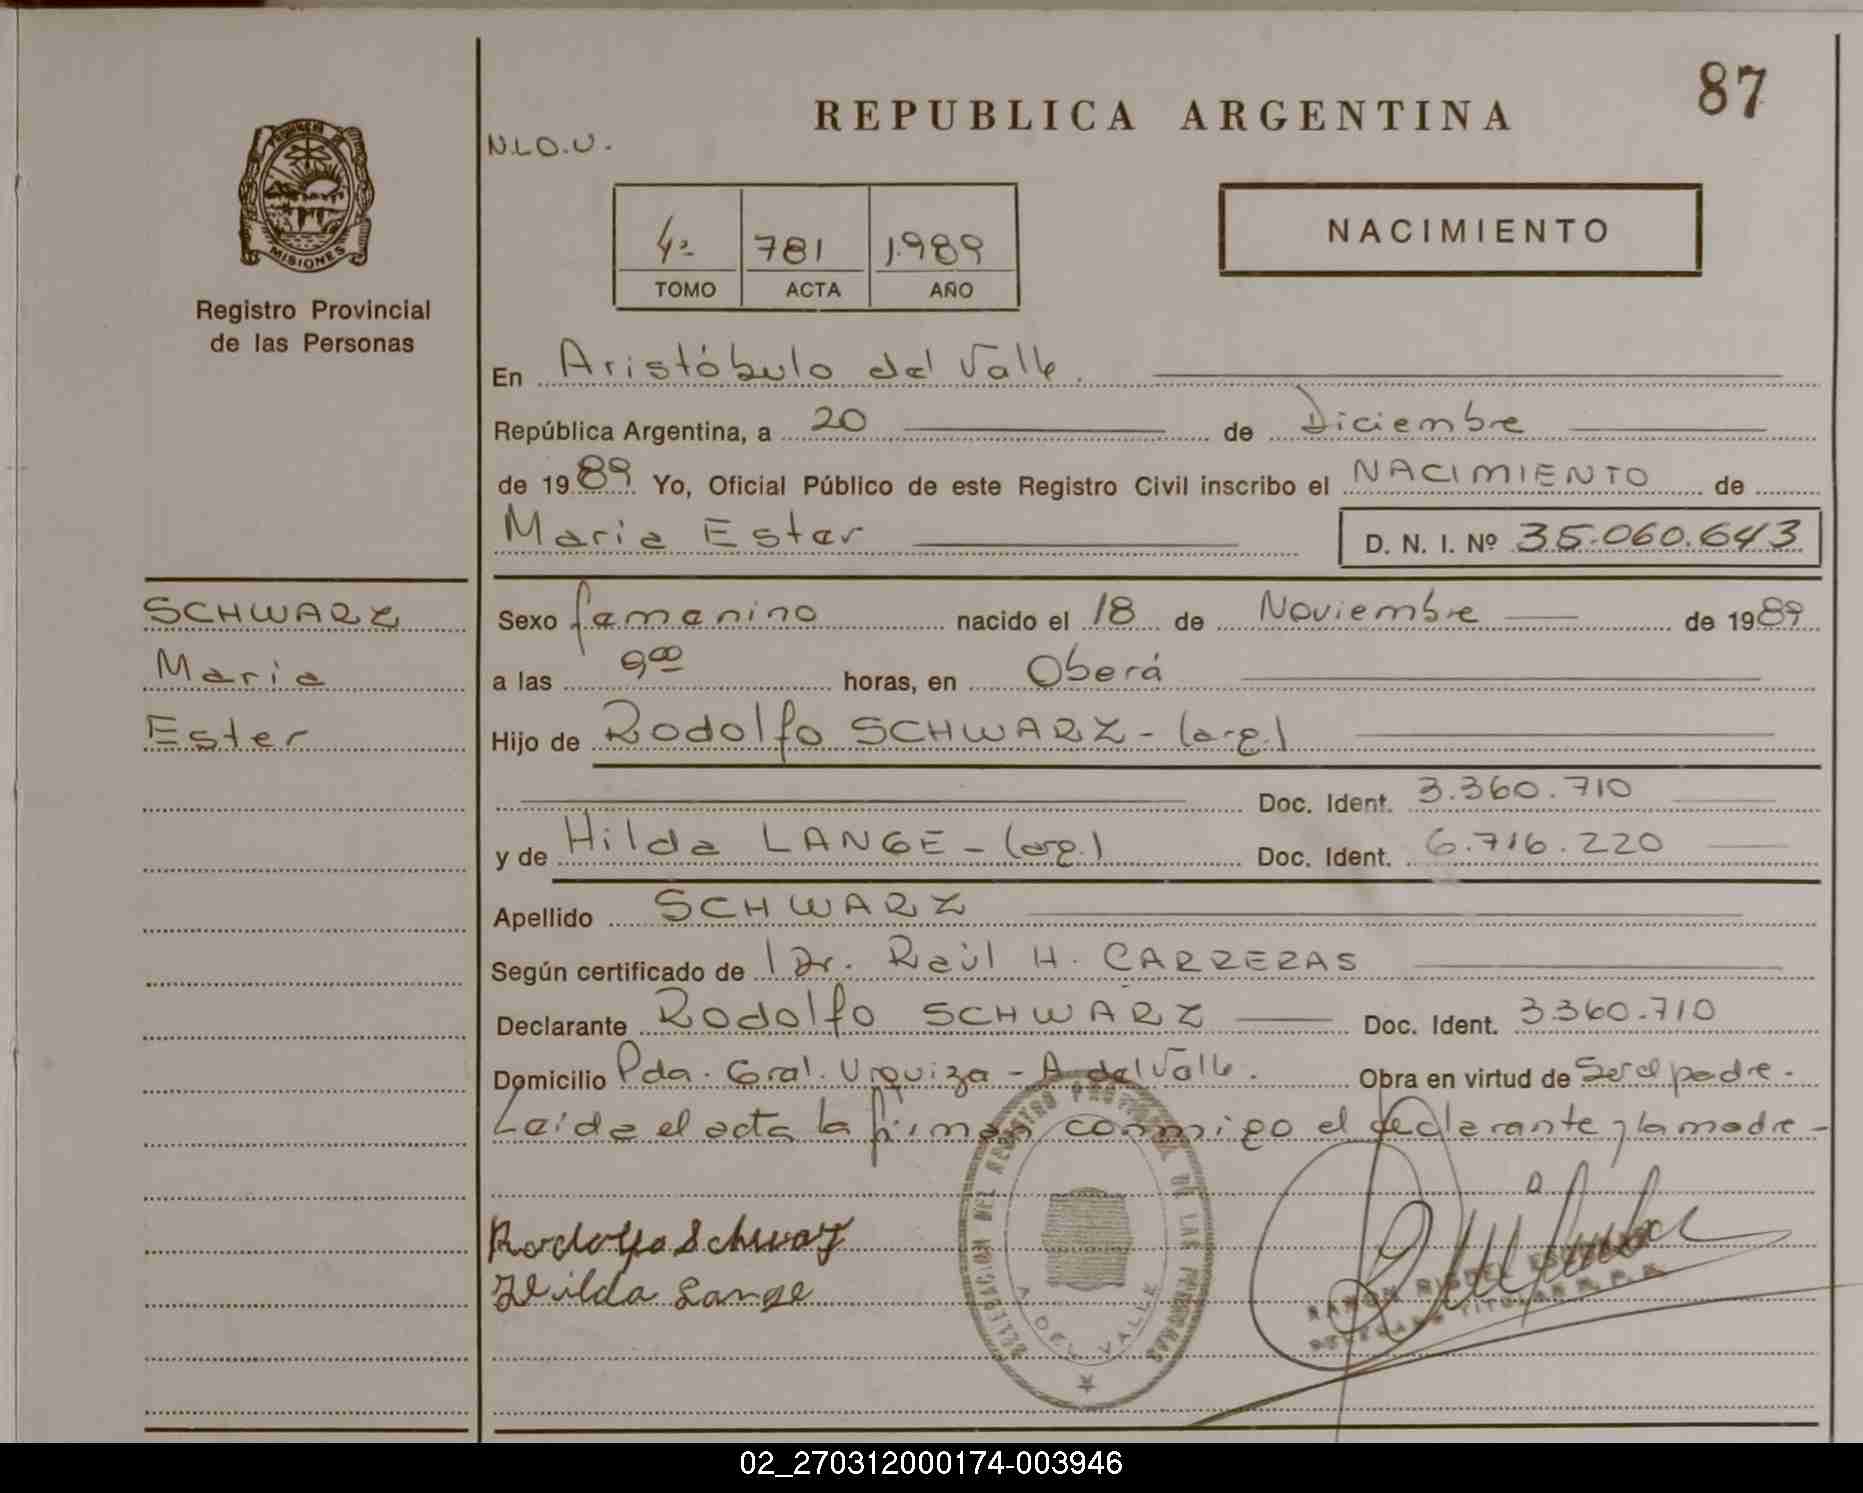 87
REPUBLICA ARGENTINA
N.L.O.U.
MISIONES
Registro Provincial
de las Personas
4º 781 1.989
TOMO ACTA AÑO
NACIMIENTO
En Aristóbulo del Valle.
República Argentina, a 20 de Diciembre
de 1989 Yo, Oficial Público de este Registro Civil inscribo el NACIMIENTO de
Maria Ester D. N. I. Nº 35.060.643
SCHWARZ
Maria
Ester
Sexo femenino nacido el 18 de Noviembre de 1989
a las 9 00 horas, en Oberá
Hijo de Rodolfo SCHWARZ - (arg.)
Doc. Ident. 3.360.710
y de Hilda LANGE - (arg.) Doc. Ident. 6.716.220
Apellido SCHWARZ
Según certificado de Dr. Raúl H. CARRERAS
Declarante Rodolfo SCHWARZ Doc. Ident. 3360.710
Domicilio Pda. Gral. Urquiza - A del Valle. Obra en virtud de Ser el padre.-
Leída el acta la firman conmigo el declarante y la madre -
Rodolfo Schwarz
Hilda Lange
DELEGACION DEL REGISTRO PROVINCIAL DE LAS PERSONAS
A. DEL VALLE
RAMON MIGUEL
TITULAR R.P.P.
02_270312000174-003946